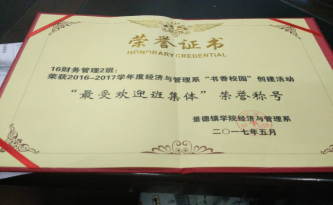 荣誉证书
HONORARY CREDENTIAL
16财务管理2班：
荣获2016-2017学年度经济与管理系“书香校园”创建活动
“最受欢迎班集体”荣誉称号
景德镇学院经济与管理系
二〇一七年五月